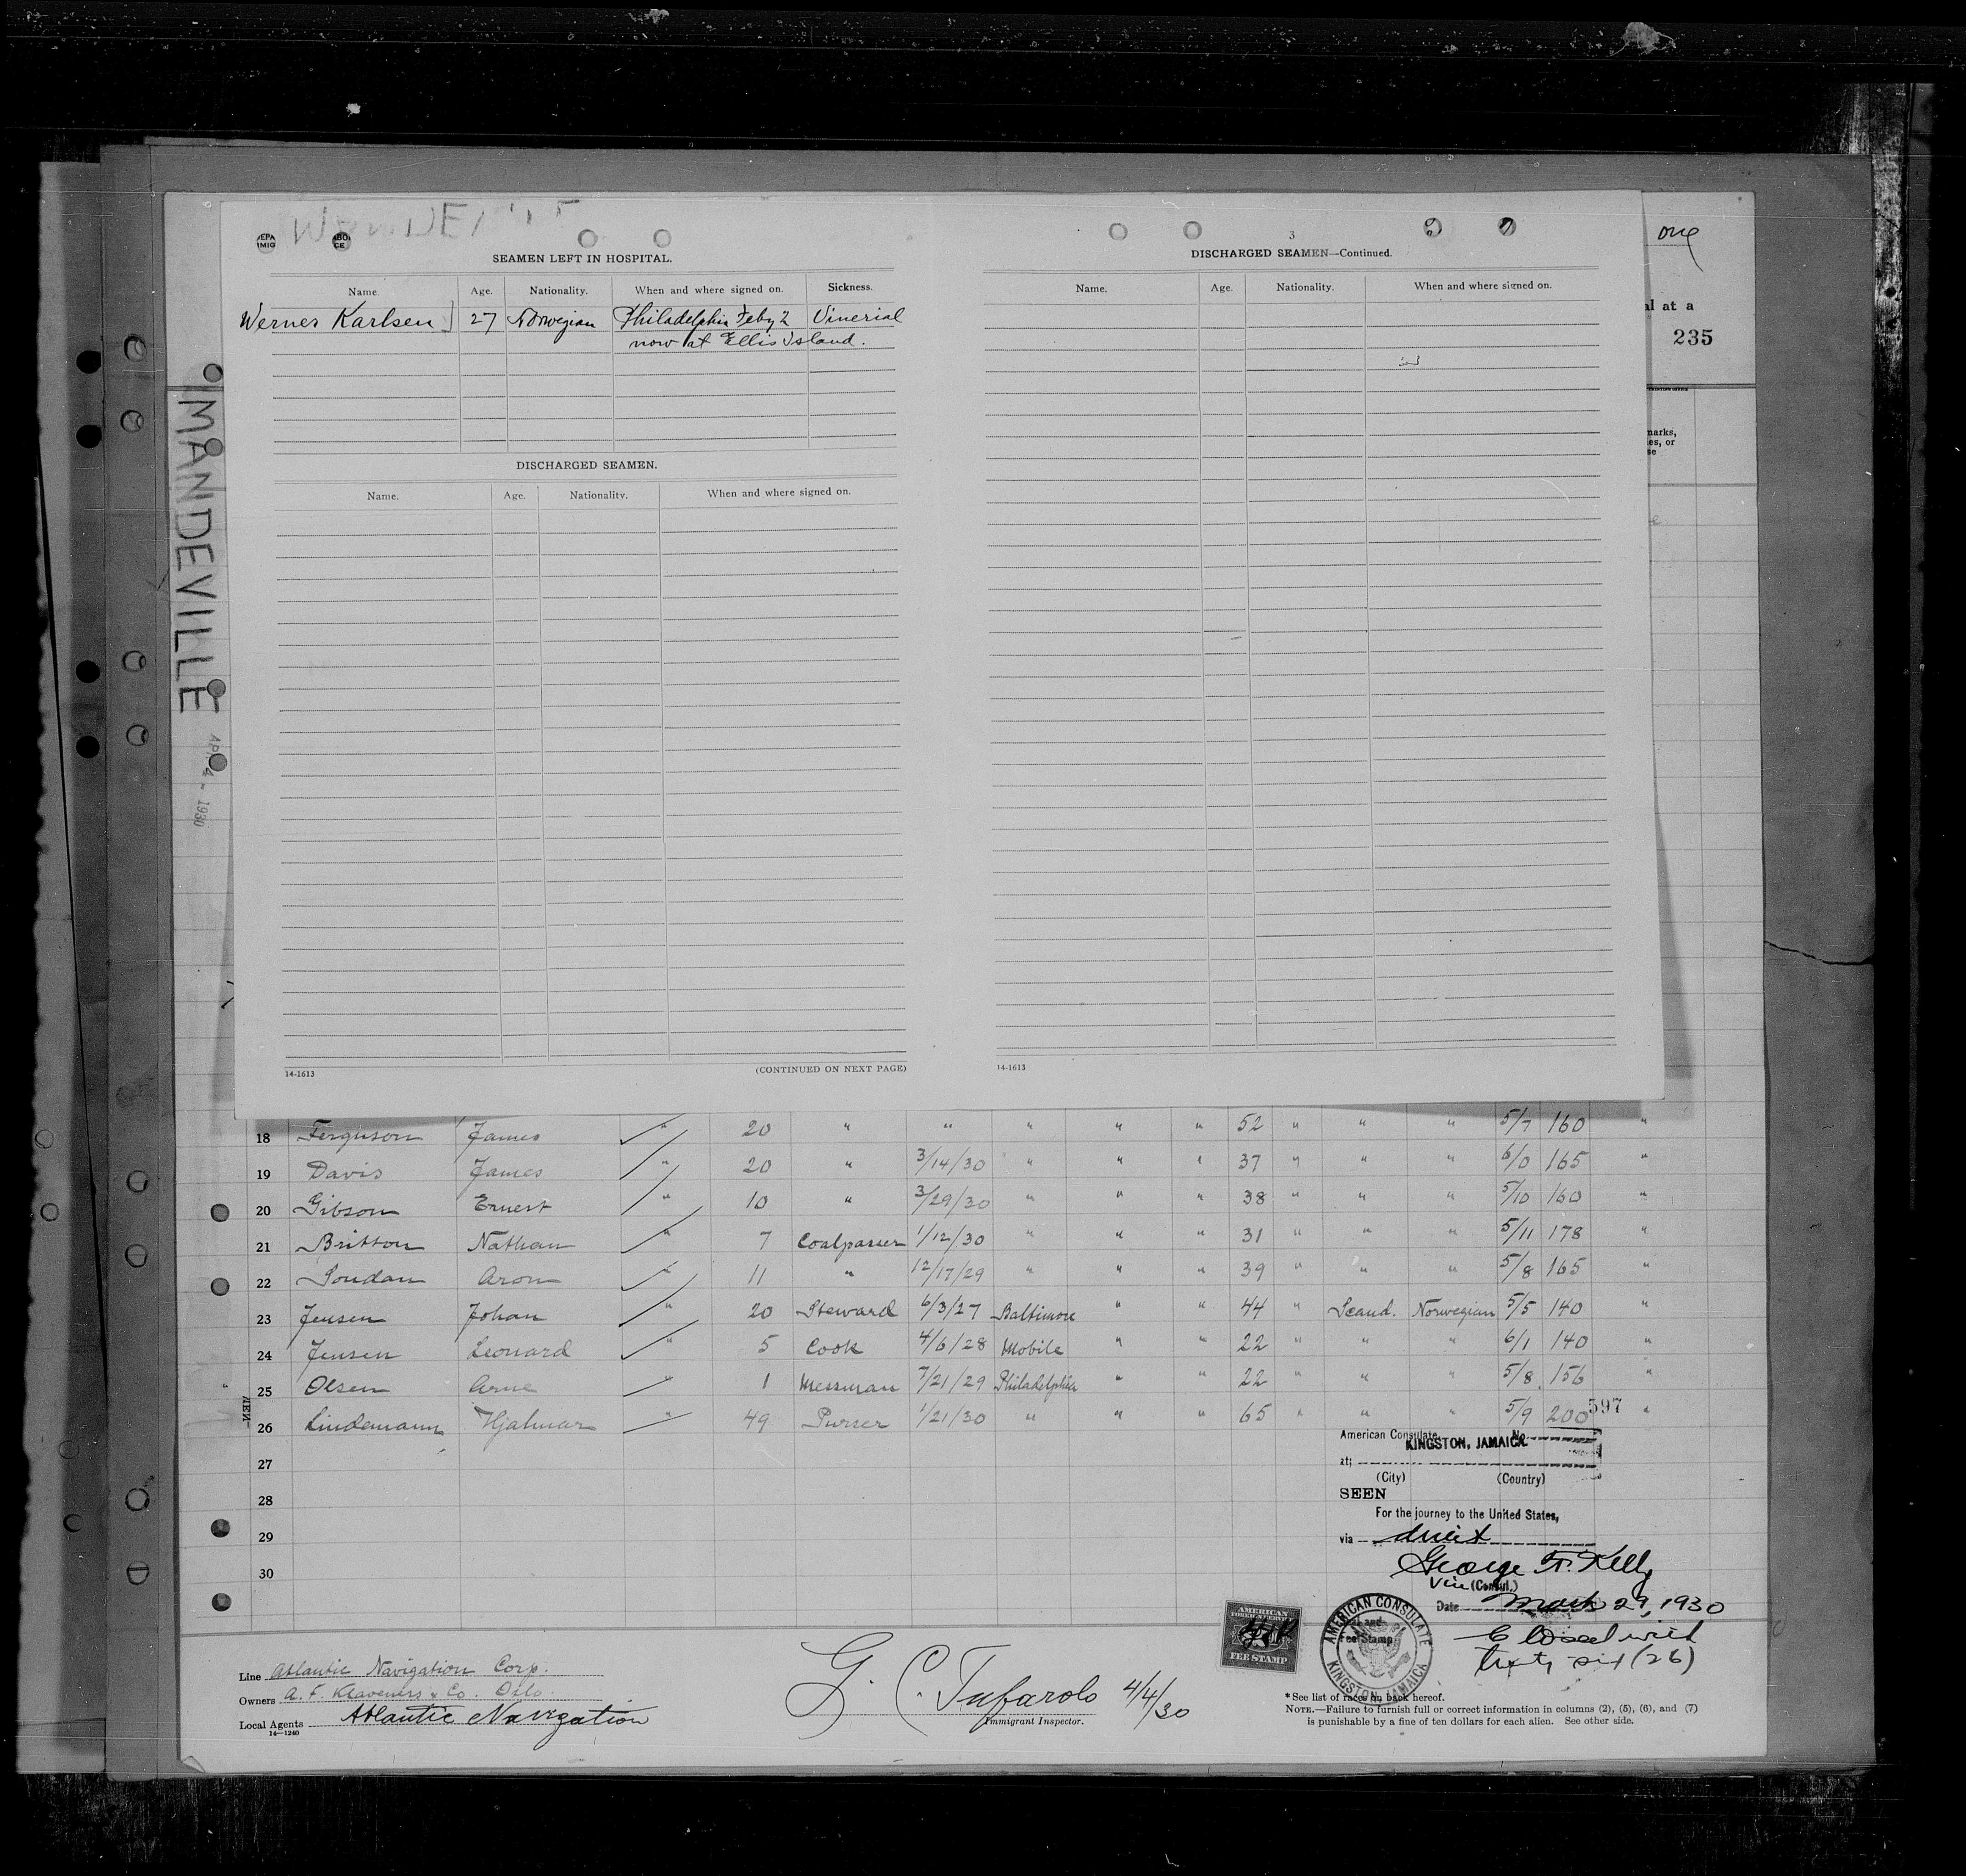 SEAMEN LEFT IN HOSPITAL.
Name. Age. Nationality. When and where signed on. Sickness.
Werner Karlsen 27 Norwegian Philadelphia Feby 2 Vinerial
now at Ellis Island.
DISCHARGED SEAMEN.
Name. Age. Nationality. When and where signed on.
14-1613 (CONTINUED ON NEXT PAGE)
3
DISCHARGED SEAMEN—Continued.
Name. Age. Nationality. When and where signed on.
14-1613
one
al at a
235
marks,
es, or
se
MANDEVILLE
APR 4 - 1930
18 Ferguson James " 20 " " " " " 52 " " " 5/7 160 "
19 Davis James " 20 " 3/14/30 " " " 37 " " " 6/0 165 "
20 Gibson Ernest " 10 " 3/29/30 " " " 38 " " " 5/10 160 "
21 Britton Nathan " 7 Coalpasser 1/12/30 " " " 31 " " " 5/11 178 "
22 Aron " 11 " 12/17/29 " " " 39 " " " 5/8 165 "
23 Jensen Johan " 20 Steward 6/3/27 Baltimore " " 44 " Scand. Norwegian 5/5 140 "
24 Jensen Leonard " 5 Cook 4/6/28 Mobile " " 22 " " " 6/1 140 "
25 Olsen Arne " 1 Messman 7/21/29 Philadelphia " " 22 " " " 5/8 156 "
26 Lindemann Hjalmar " 49 Purser 1/21/30 " " " 65 " " " 5/9 200 "
27
28
29
30
597
American Consulate No.
KINGSTON, JAMAICA
at;
(City) (Country)
SEEN
For the journey to the United States,
via direct
George F. Kelly
Vice (Consul.)
Date March 29, 1930
Closed with
twenty six (26)
AMERICAN
FOREIGN SERVICE
FEE STAMP
AMERICAN CONSULATE
KINGSTON, JAMAICA
Line Atlantic Navigation Corp.
Owners A. F. Klaveness & Co. Oslo
Local Agents Atlantic Navigation
14—1240
G. C. Tufarolo 4/4/30
Immigrant Inspector.
*See list of races on back hereof.
NOTE.—Failure to furnish full or correct information in columns (2), (5), (6), and (7)
is punishable by a fine of ten dollars for each alien. See other side.